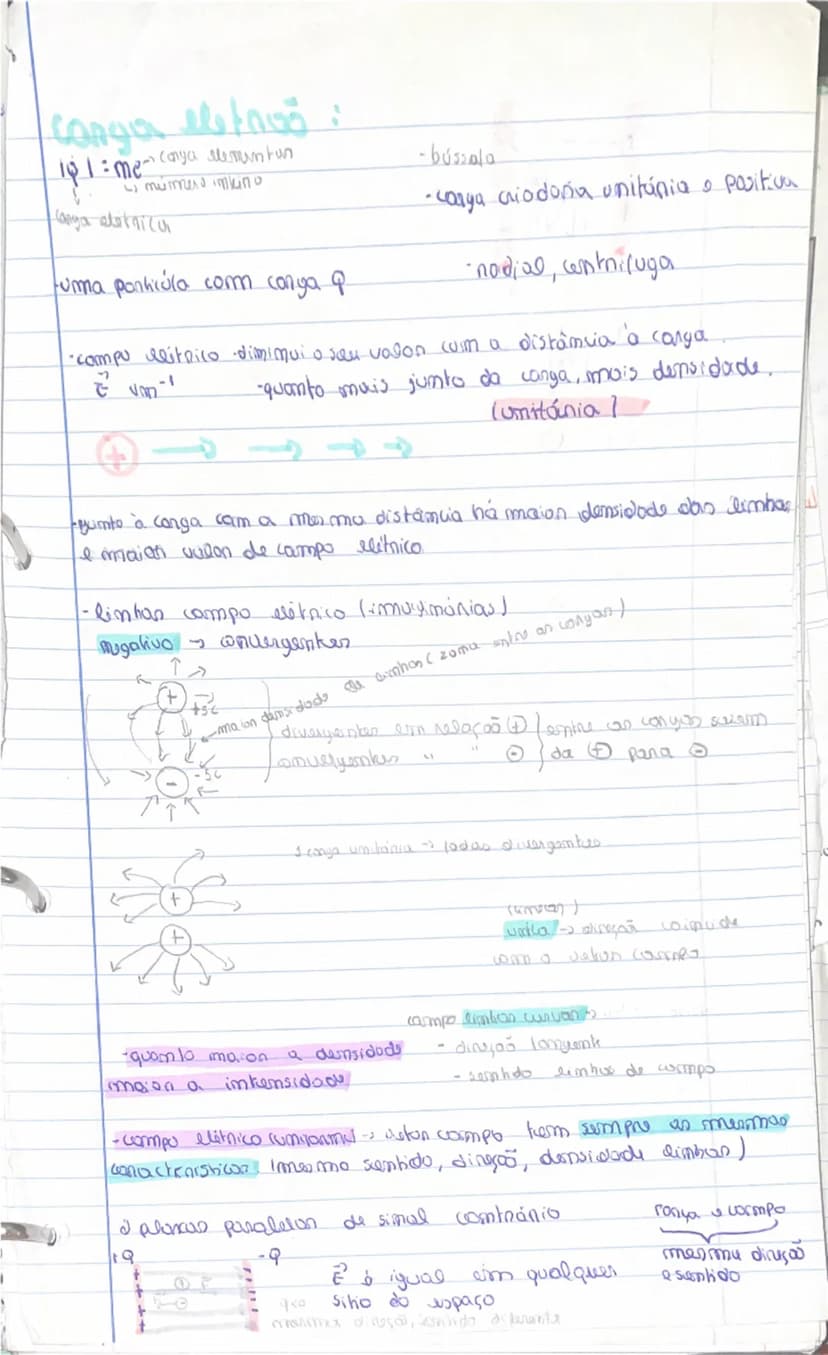 carga elétrica :
|q| : ne → carga elementar
↳ número inteiro
carga elétrica
- bússola
- carga criadora unitária e positiva
- uma partícula com carga q
- radial, centrífuga
- campo elétrico - diminui o seu valor com a distância à carga
E⃗ Vm⁻¹ - quanto mais junto da carga, mais densidade.
(unitária)
+
- junto à carga com a mesma distância há maior densidade das linhas
e maior valor de campo elétrico
- linhas campo elétrico (imaginárias)
negativo → convergentes
maior densidade de linhas (zona entre as cargas)
+
-
divergentes em relação +
convergentes " " -
entre as cargas saem
da + para -
1 carga unitária → todas divergentes
+
+
→ direção coincide
com o vetor campo
campo linhas curvas →
- direção tangente
- sentido linhas de campo
- quanto maior a densidade
maior a intensidade
- campo elétrico (uniforme) → vetor campo tem sempre as mesmas
características (mesmo sentido, direção, densidade linhas)
2 placas paralelas de sinal contrário
+Q -Q
E⃗ é igual em qualquer
sítio do espaço
força e campo
mesma direção
e sentido
q<0
mesma direção, sentido diferente